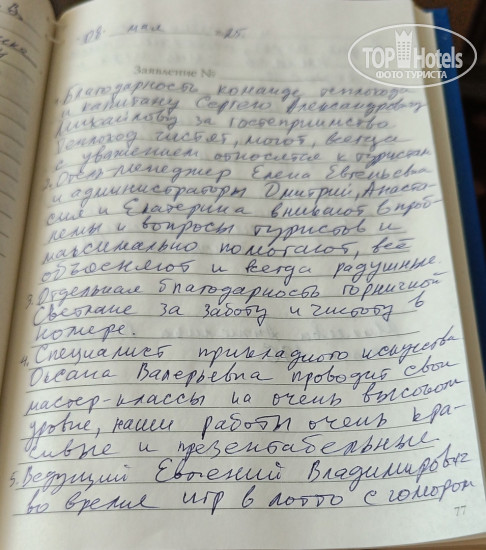 В.
"08" мая 25.
TOPHotels
ФОТО ТУРИСТА
Заявление №
1. Благодарность команде теплохода
и капитану Сергею Александровичу
Михайлову за гостеприимство
Теплоход чистят, моют, всегда
с уважением относятся к туристам
2. Отель-менеджер Елена Евгеньевна
и администраторы Дмитрий, Анаста-
сия и Екатерина вникают в проб-
лемы и вопросы туристов и
максимально помогают, всё
объясняют и всегда радушные.
3. Отдельная благодарность горничной
Светлане за заботу и чистоту в
номере.
4. Специалист прикладного искусства
Оксана Валерьевна проводит свои
мастер-классы на очень высоком
уровне, наши работы очень кра-
сивые и презентабельные
5. Ведущий Евгений Владимирович
во время игр в лото с юмором
77